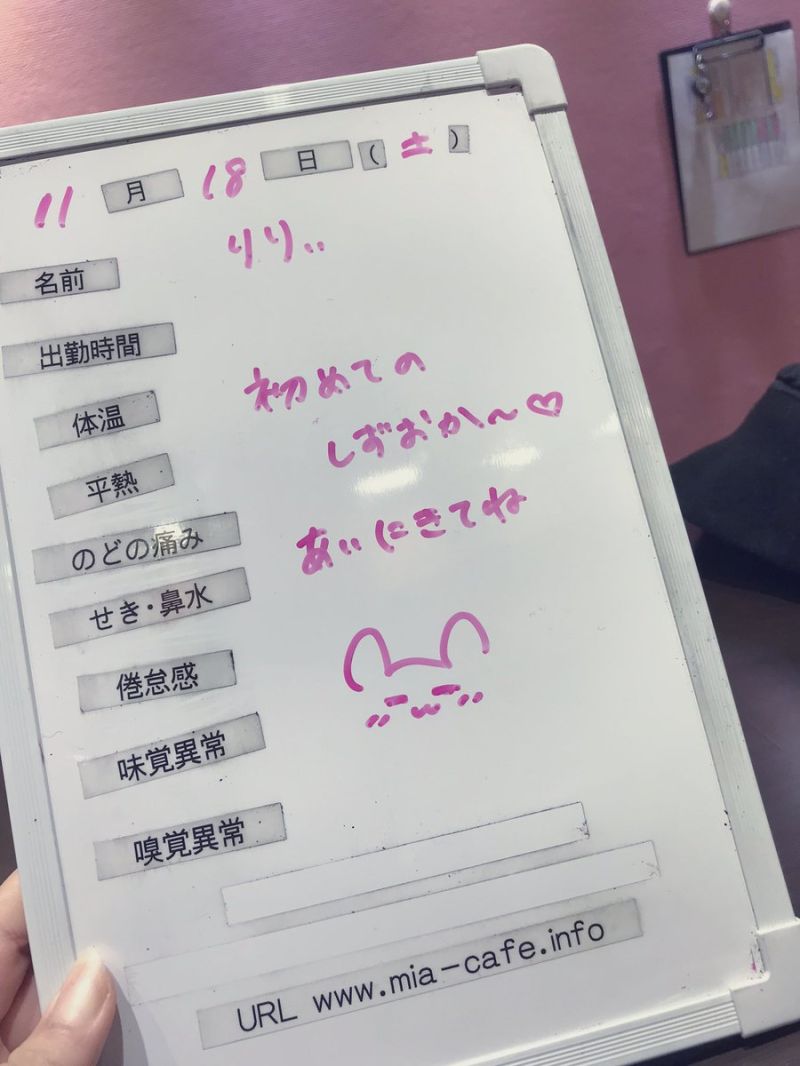 11月18日(土)
名前 りりぃ
出勤時間
初めての
体温
しずおか〜♡
平熱
あいにきてね
のどの痛み
せき・鼻水
倦怠感
味覚異常
嗅覚異常
URL www.mia-cafe.info